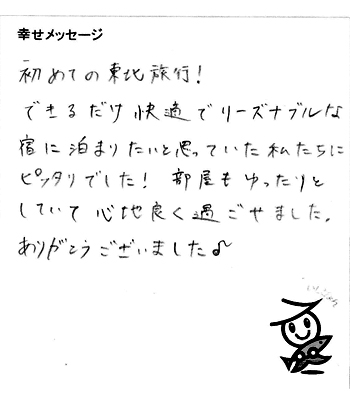 幸せメッセージ
初めての東北旅行!
できるだけ快適でリーズナブルな
宿に泊まりたいと思っていた私たちに
ピッタリでした! 部屋もゆったりと
していて心地良く過ごせました。
ありがとうございました♪